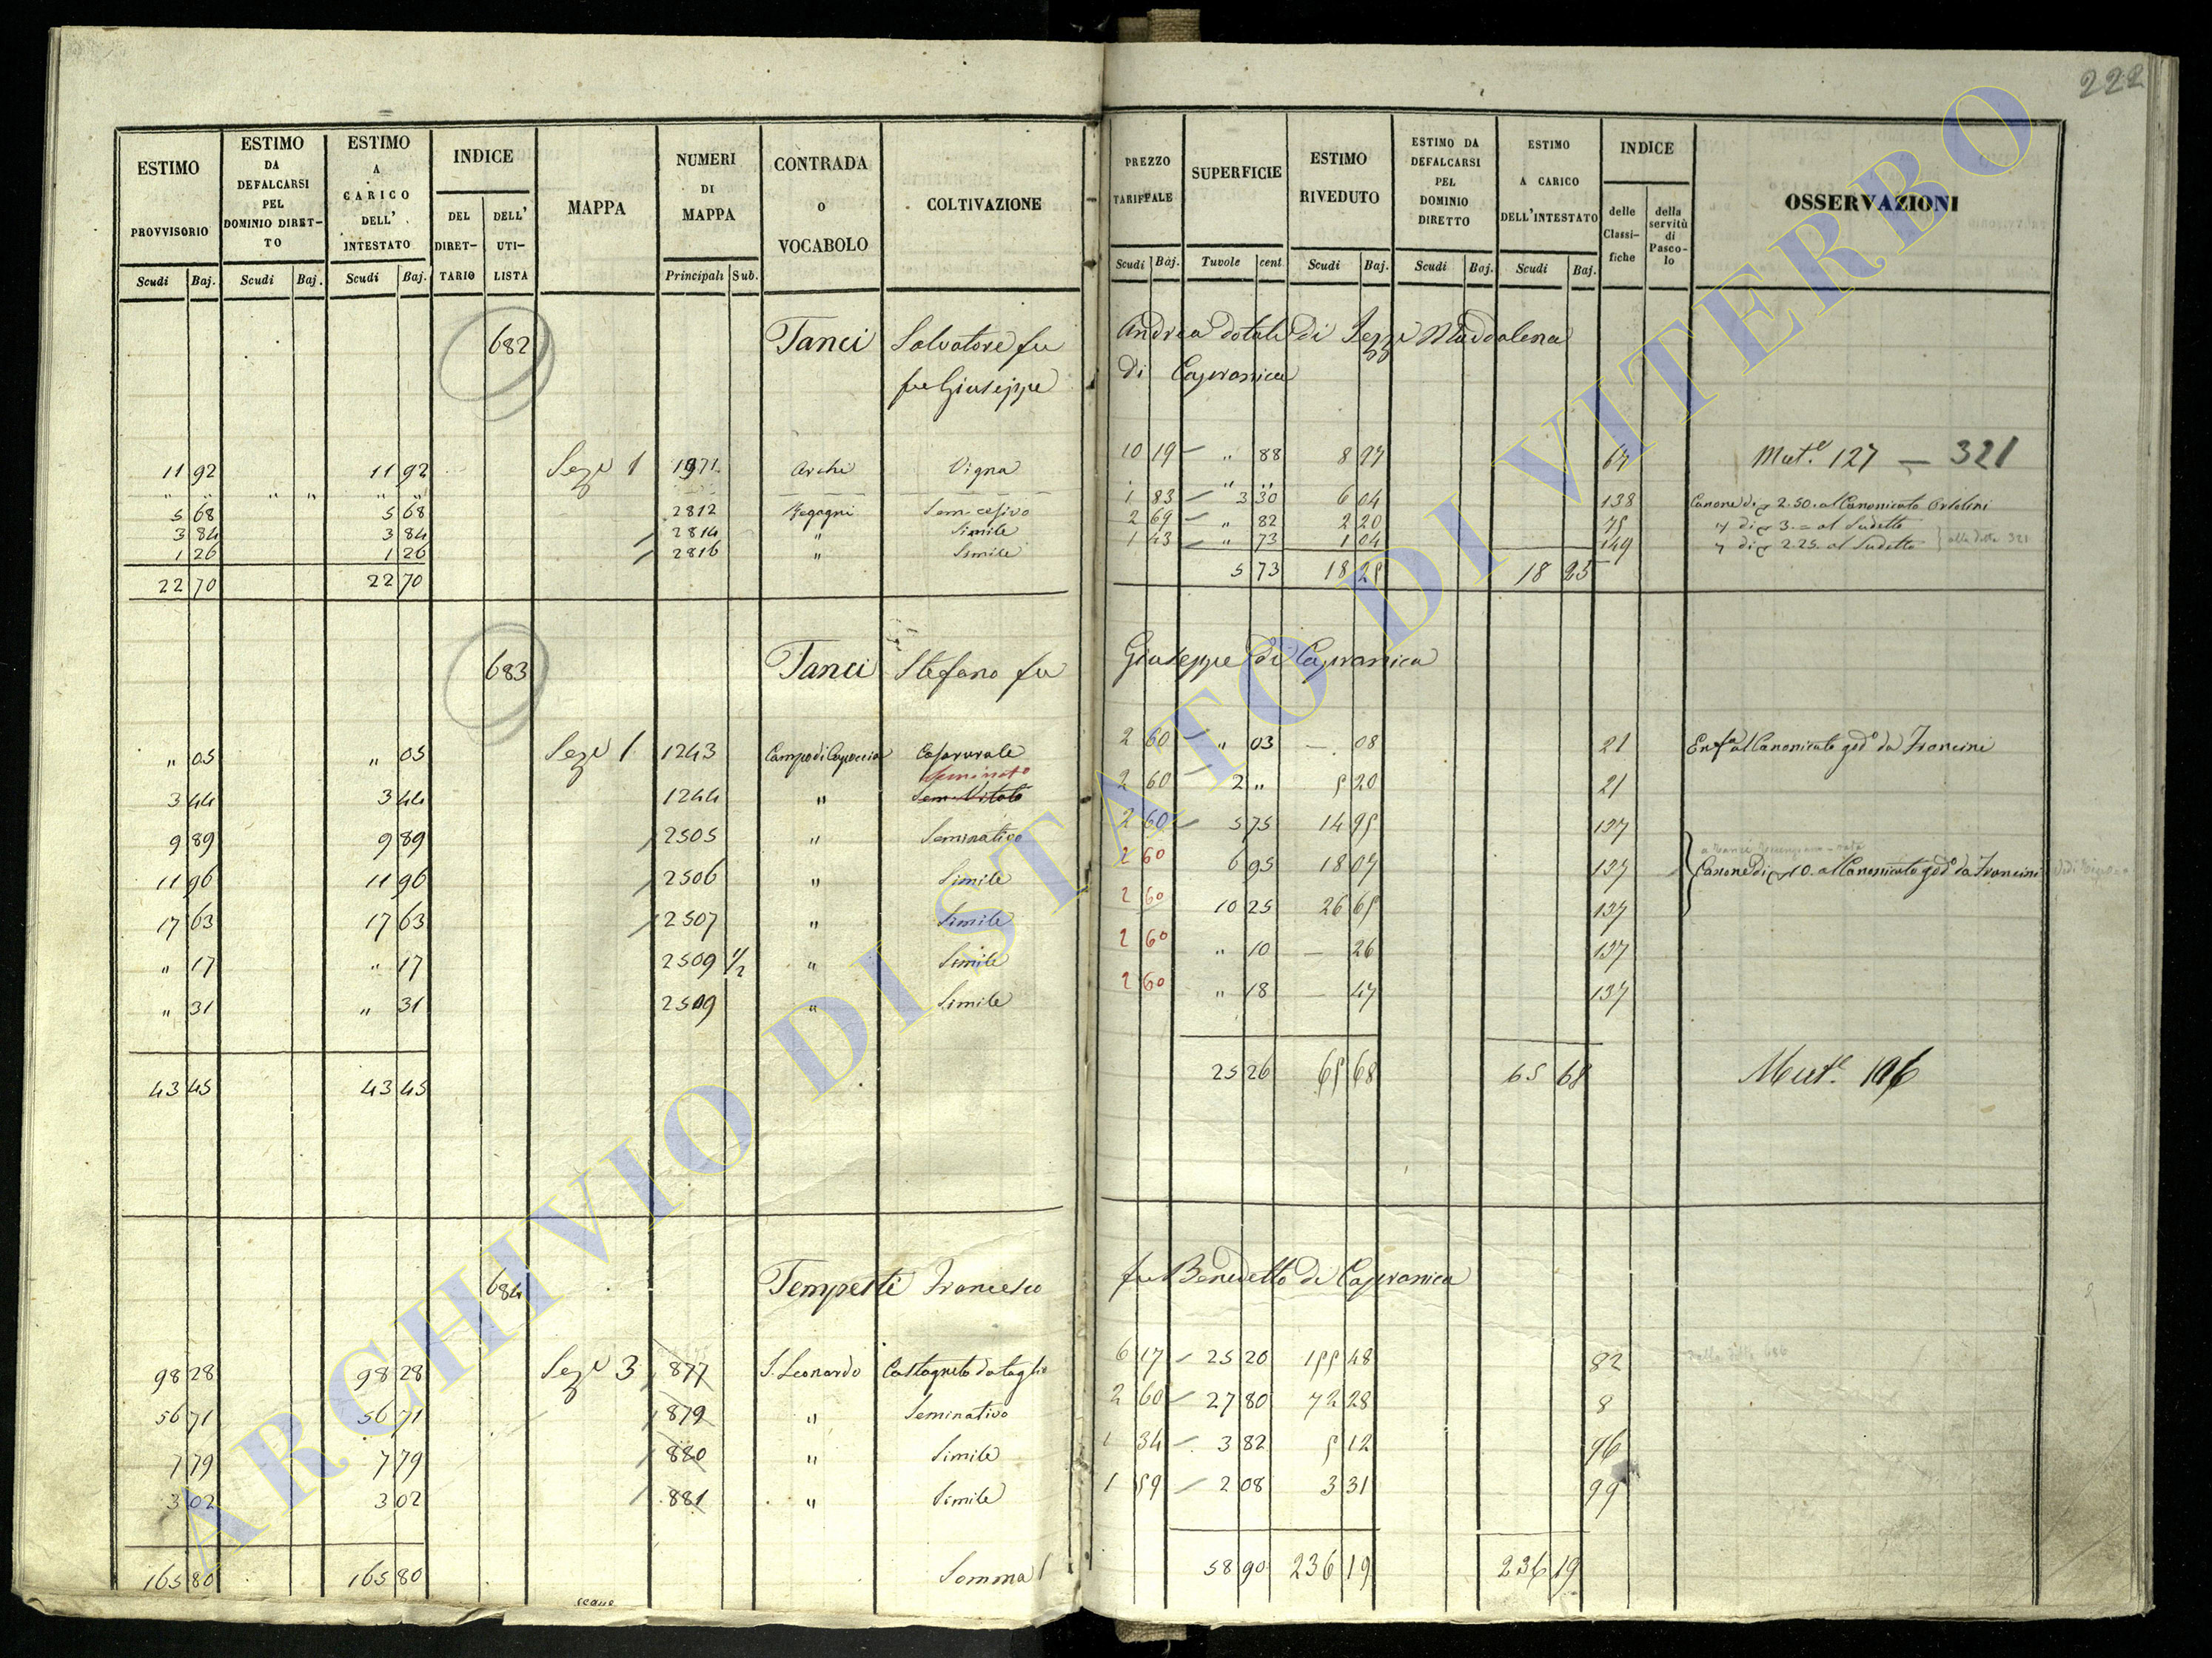 222
ESTIMO PROVVISORIO | ESTIMO DA DEFALCARSI PEL DOMINIO DIRETTO | ESTIMO A CARICO DELL' INTESTATO | INDICE DEL DIRETTARIO | DELL' UTILISTA | MAPPA | NUMERI DI MAPPA | CONTRADA O VOCABOLO | COLTIVAZIONE | PREZZO TARIFFALE | SUPERFICIE | ESTIMO RIVEDUTO | ESTIMO DA DEFALCARSI PEL DOMINIO DIRETTO | ESTIMO A CARICO DELL'INTESTATO | INDICE delle Classifiche | della servitù di Pascolo | OSSERVAZIONI
Scudi | Baj. | Scudi | Baj. | Scudi | Baj. | Principali | Sub. | Scudi | Baj. | Tavole | cent | Scudi | Baj. | Scudi | Baj. | Scudi | Baj.
682 Tanci Salvatore fu Andrea dotale di Maddalena
fu Giuseppe di Capranica
11 92 | 11 92 | Seze 1 | 1971 | Archi | Vigna | 10 19 | " 88 | 8 97 | 67 | Mut.e 127 — 321
" " | " " | " " | " "
5 68 | 5 68 | 2812 | Sem. cesivo | 1 83 | 3 30 | 6 04 | 138 | Canone di 2.50. al Canonicato
3 84 | 3 84 | 2814 | " | Simile | 2 69 | " 82 | 2 20 | 75 | " di 3. = al Sudetto
1 26 | 1 26 | 2816 | " | Simile | 1 43 | " 73 | 1 04 | 149 | " di 2.25. al Sudetto | 321
22 70 | 22 70 | 5 73 | 18 25 | 18 25
683 Tanci Stefano fu Giuseppe di Capranica
" 05 | " 05 | Seze 1 | 1243 | Campo di | Casa rurale | 2 60 | " 03 | — 08 | 21 | al Canonicato god.o da Francini
Seminato
3 44 | 3 44 | 1244 | " | Sem. Vitato | 2 60 | 2 " | 5 20 | 21
9 89 | 9 89 | 2505 | " | Seminativo | 2 60 | 5 75 | 14 95 | 137
11 96 | 11 96 | 2506 | " | Simile | 2 60 | 6 95 | 18 07 | 137 | Canone di 10. al Canonicato god.o da Francini
17 63 | 17 63 | 2507 | " | Simile | 2 60 | 10 25 | 26 65 | 137
" 17 | " 17 | 2509 1/2 | " | Simile | 2 60 | " 10 | — 26 | 137
" 31 | " 31 | 2509 | " | Simile | 2 60 | " 18 | — 47 | 137
43 45 | 43 45 | 25 26 | 65 68 | 65 68 | Mut.e 196
684 Tempesti Francesco fu Benedetto di Capranica
98 28 | 98 28 | Seze 3 | 877 | S. Leonardo | Castagneto da taglio | 6 17 | 25 20 | 155 48 | 82
56 71 | 56 71 | 879 | " | Seminativo | 2 60 | 27 80 | 72 28 | 8
7 79 | 7 79 | 880 | " | Simile | 1 34 | 3 82 | 5 12 | 96
3 02 | 3 02 | 881 | " | Simile | 1 59 | 2 08 | 3 31 | 99
165 80 | 165 80 | Somma | 58 90 | 236 19 | 236 19
segue
ARCHIVIO DI STATO DI VITERBO